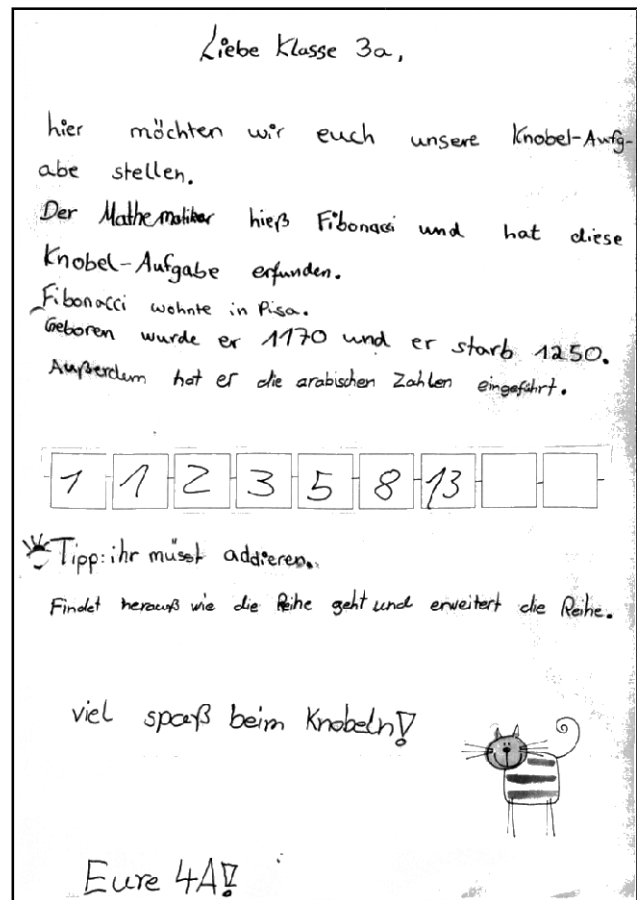 Liebe Klasse 3a,
hier möchten wir euch unsere Knobel-Aufg-
abe stellen.
Der Mathematiker hieß Fibonacci und hat diese
Knobel-Aufgabe erfunden.
Fibonacci wohnte in Pisa.
Geboren wurde er 1170 und er starb 1250.
Außerdem hat er die arabischen Zahlen eingeführt.
1 1 2 3 5 8 13
Tipp: ihr müsst addieren.
Findet herauß wie die Reihe geht und erweitert die Reihe.
viel spaß beim Knobeln!
Eure 4A!